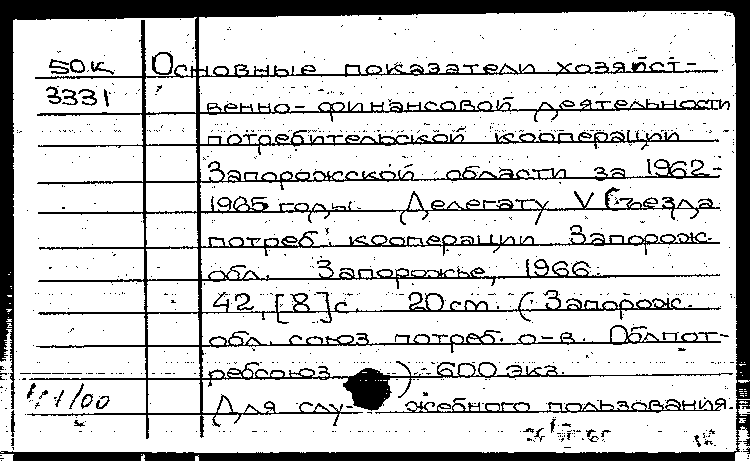 50к Основные показатели хозяйст-
3331 венно-финансовой деятельности
потребительской кооперации
Запорожской области за 1962-
1965 годы. Делегату V Съезда
потреб. кооперации Запорож.
обл. Запорожье, 1966.
42, [8] с. 20 cm. (Запорож.
обл. союз потреб. о-в. Облпот-
ребсоюз ) 600 экз.
Для слу- жебного пользования.